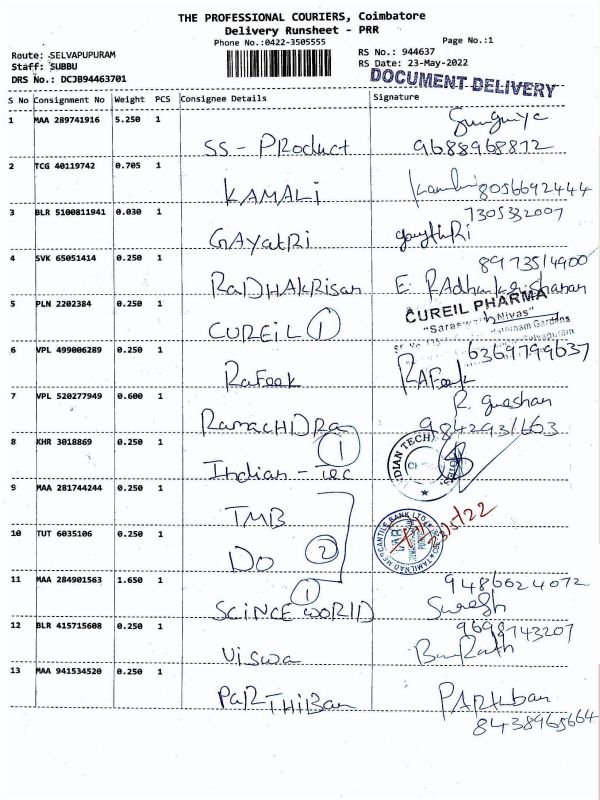 THE PROFESSIONAL COURIERS, Coimbatore
Delivery Runsheet - PRR
Phone No.:0422-3505555
Page No.:1
Route: SELVAPUPURAM
Staff: SUBBU
DRS No.: DCJB94463701
RS No.: 944637
RS Date: 23-May-2022
DOCUMENT DELIVERY
S No Consignment No Weight PCS Consignee Details Signature
1 MAA 289741916 5.250 1
SS - PRoduct 9688968812
2 TCG 40119742 0.705 1
KAMALi 8056692444
3 BLR 5100811941 0.030 1 7305332007
GAYatRi gaythRi
4 SVK 65051414 0.250 1 8973514900
RaDHAKRISan E. RAdhakrishanan
5 PLN 2202384 0.250 1 CUREIL PHARMA
"Saraswathi Nivas"
CUREIL 1
6 VPL 499006289 0.250 1 6369799637
Rafeek RAFeek
7 VPL 520277949 0.600 1 R. gueshan
RamacHDRa 9842931663
8 KHR 3018869 0.250 1 1
Indian - Tec
9 MAA 281744244 0.250 1
TMB 23/5/22
10 TUT 6035106 0.250 1
DO 2
11 MAA 284901563 1.650 1 1 9486624072
SCINCE WORLD Suresh
12 BLR 415715608 0.250 1 9698743207
Viswa BaRath
13 MAA 941534520 0.250 1
PaRTHiBan PARthban
8438965664